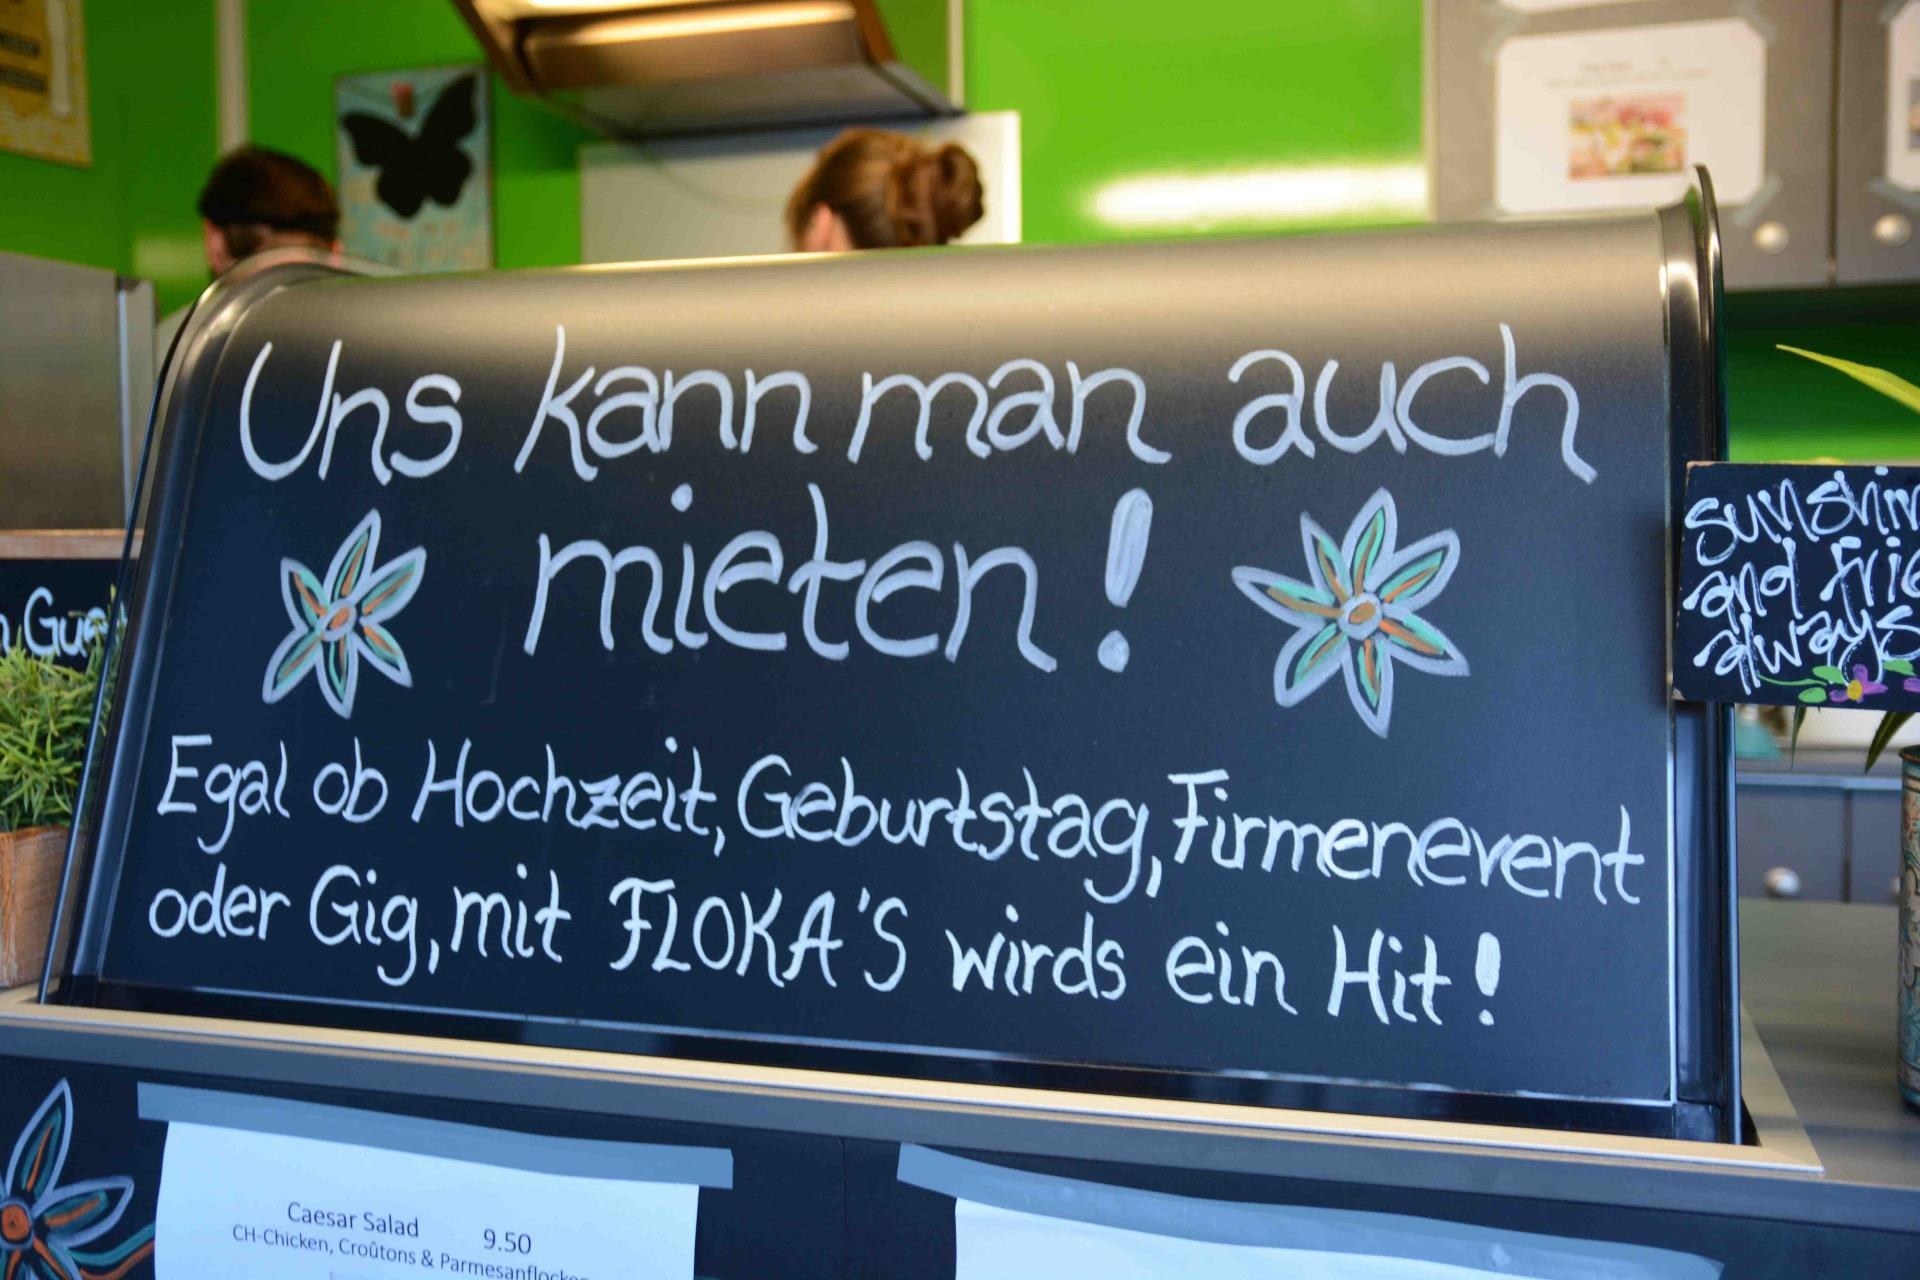 Uns kann man auch
mieten!
Egal ob Hochzeit, Geburtstag, Firmenevent
oder Gig, mit FLOKA'S wirds ein Hit!
and
always
Caesar Salad 9.50
CH-Chicken, Croûtons &